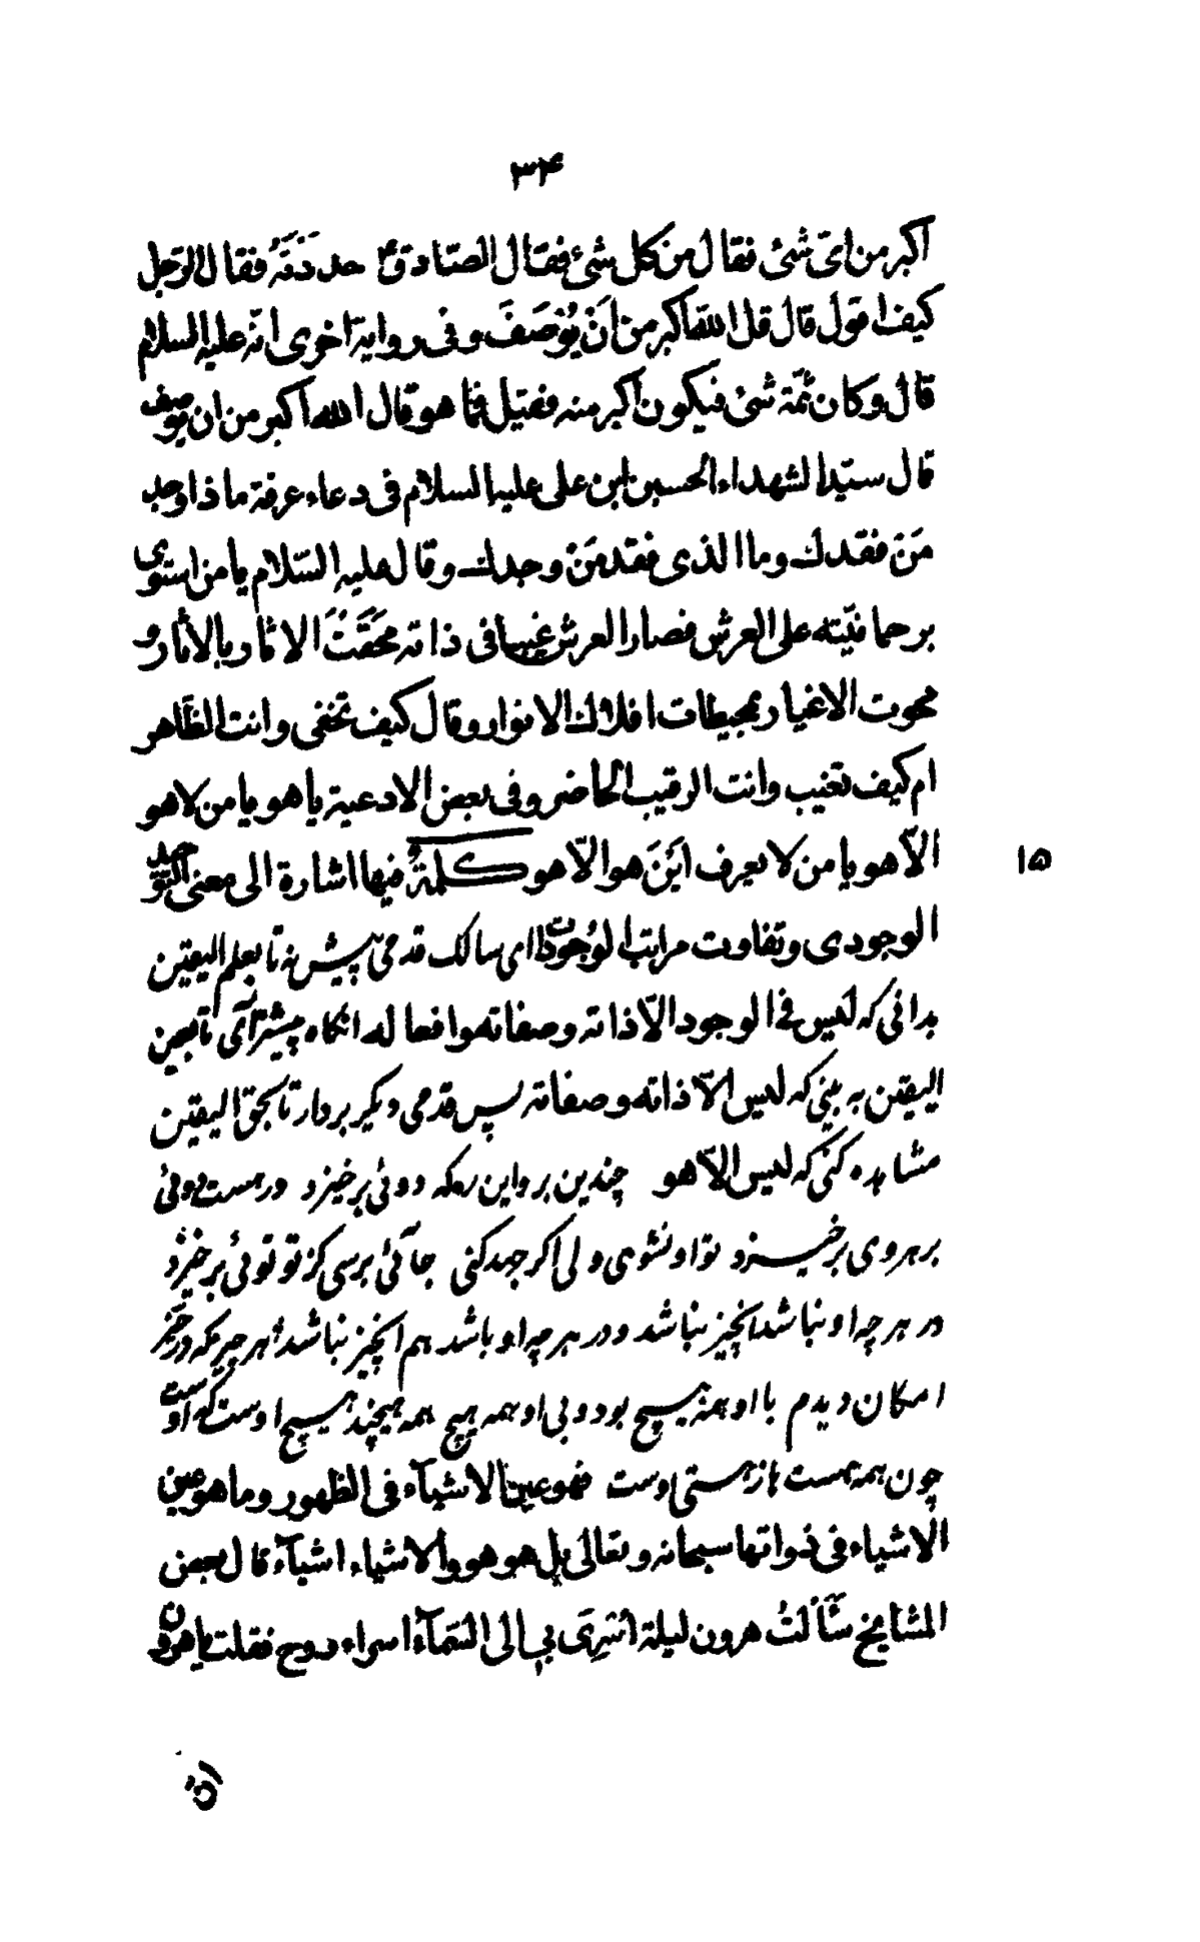 ۳۴
اکبر من ایّ شئ فقال من کل شئ فقال الصّادق ع حددتَهُ فقال الرّجل
کیف اقول قال قل اللّه اکبر من اَنْ یُوْصَفَ و فی روایة اخری انّه علیه السلام
قال و کان ثمّة شئ فیکون اکبر منه فقیل فما هو قال الله اکبر من ان یوصف
قال سیّد الشهداء الحسین ابن علی علیه السلام فی دعاء عرفة ماذا وجد
مَنْ فقدك و ما الذی فقد مَنْ وجدك و قال علیه السّلام یا من استوی
برحمانیّته علی العرش فصار العرش غیبا فی ذاته مَحَقْتَ الاثار بالأثار و
محوت الاغیار بمحیطات افلاك الانوار و قال کیف تخفی و انت الظّاهر
ام کیف تغیب و انت الرقیب الحاضر و فی بعض الادعیة یا هو یا من لا هو
الّا هو یا من لا یعرف ایْنَ هو الّا هو کلمةٌ فیها اشارة الی معنی التوحید
۱۵
الوجودی و تفاوت مراتب الوجودات ای سالک قدمی پیش نه تا بعلم الیقین
بدانی که لیس فی الوجود الّا ذاته و صفاته و افعاله انکاه پیشتر آی تا بعین
الیقین به بینی که لیس الّا ذاته و صفاته پس قدمی دیکر بردار تا بحق الیقین
مشاهده کنی که لیس الّا هو چندین برو این ره که دوئی برخیزد ور هست دوئی
برهروی برخیزد تو او نشوی ولی اکر جهد کنی جائی برسی کز تو توئی برخیزد
در هر چه او نباشد انچیز نباشد و در هر چه او باشد هم انچیز نباشد هر چیز که در حیز
امکان دیدم با او همه هیچ بود و بی او همه هیچ همه هیچند هیچ اوست که اوست
چون همه هست ها ز هستی اوست فهو عین الأشیآء فی الظهور و ما هو عین
الاشیاء فی ذواتها سبحانه و تعالی بل هو هو و الاشیاء اشیآء قال بعض
المشایخ سَأَلتُ هرون لیلة اُسْرِیَ بی الی السّمآء اسراء روح فقلت یا هرون